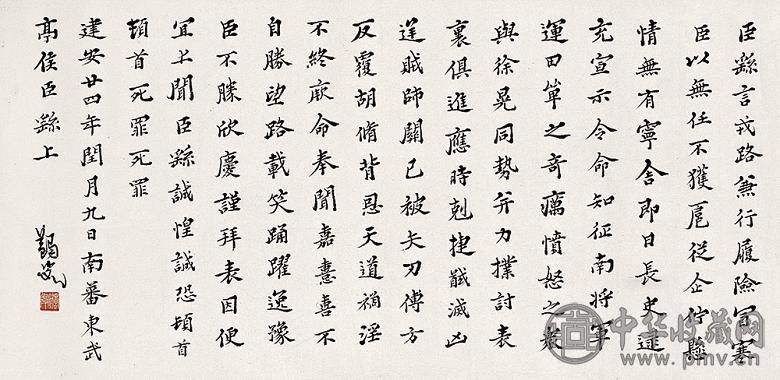 臣繇言戎路兼行履險冒寒
臣以無任不獲扈從企佇懸
情無有寧舍即日長史逮
充宣示令命知征南將軍
運田單之奇厲憤怒之衆
與徐晃同勢并力撲討表
裏俱進應時剋捷馘滅凶
逆賊帥關已被矢刃傅方
反覆胡脩背恩天道禍淫
不終厥命奉聞嘉憙喜不
自勝望路載笑踊躍逆豫
臣不勝欣慶謹拜表因便
宜上聞臣繇誠惶誠恐頓首
頓首死罪死罪
建安廿四年閏月九日南蕃東武
亭侯臣繇上
中华收藏网
www.pmv.cn